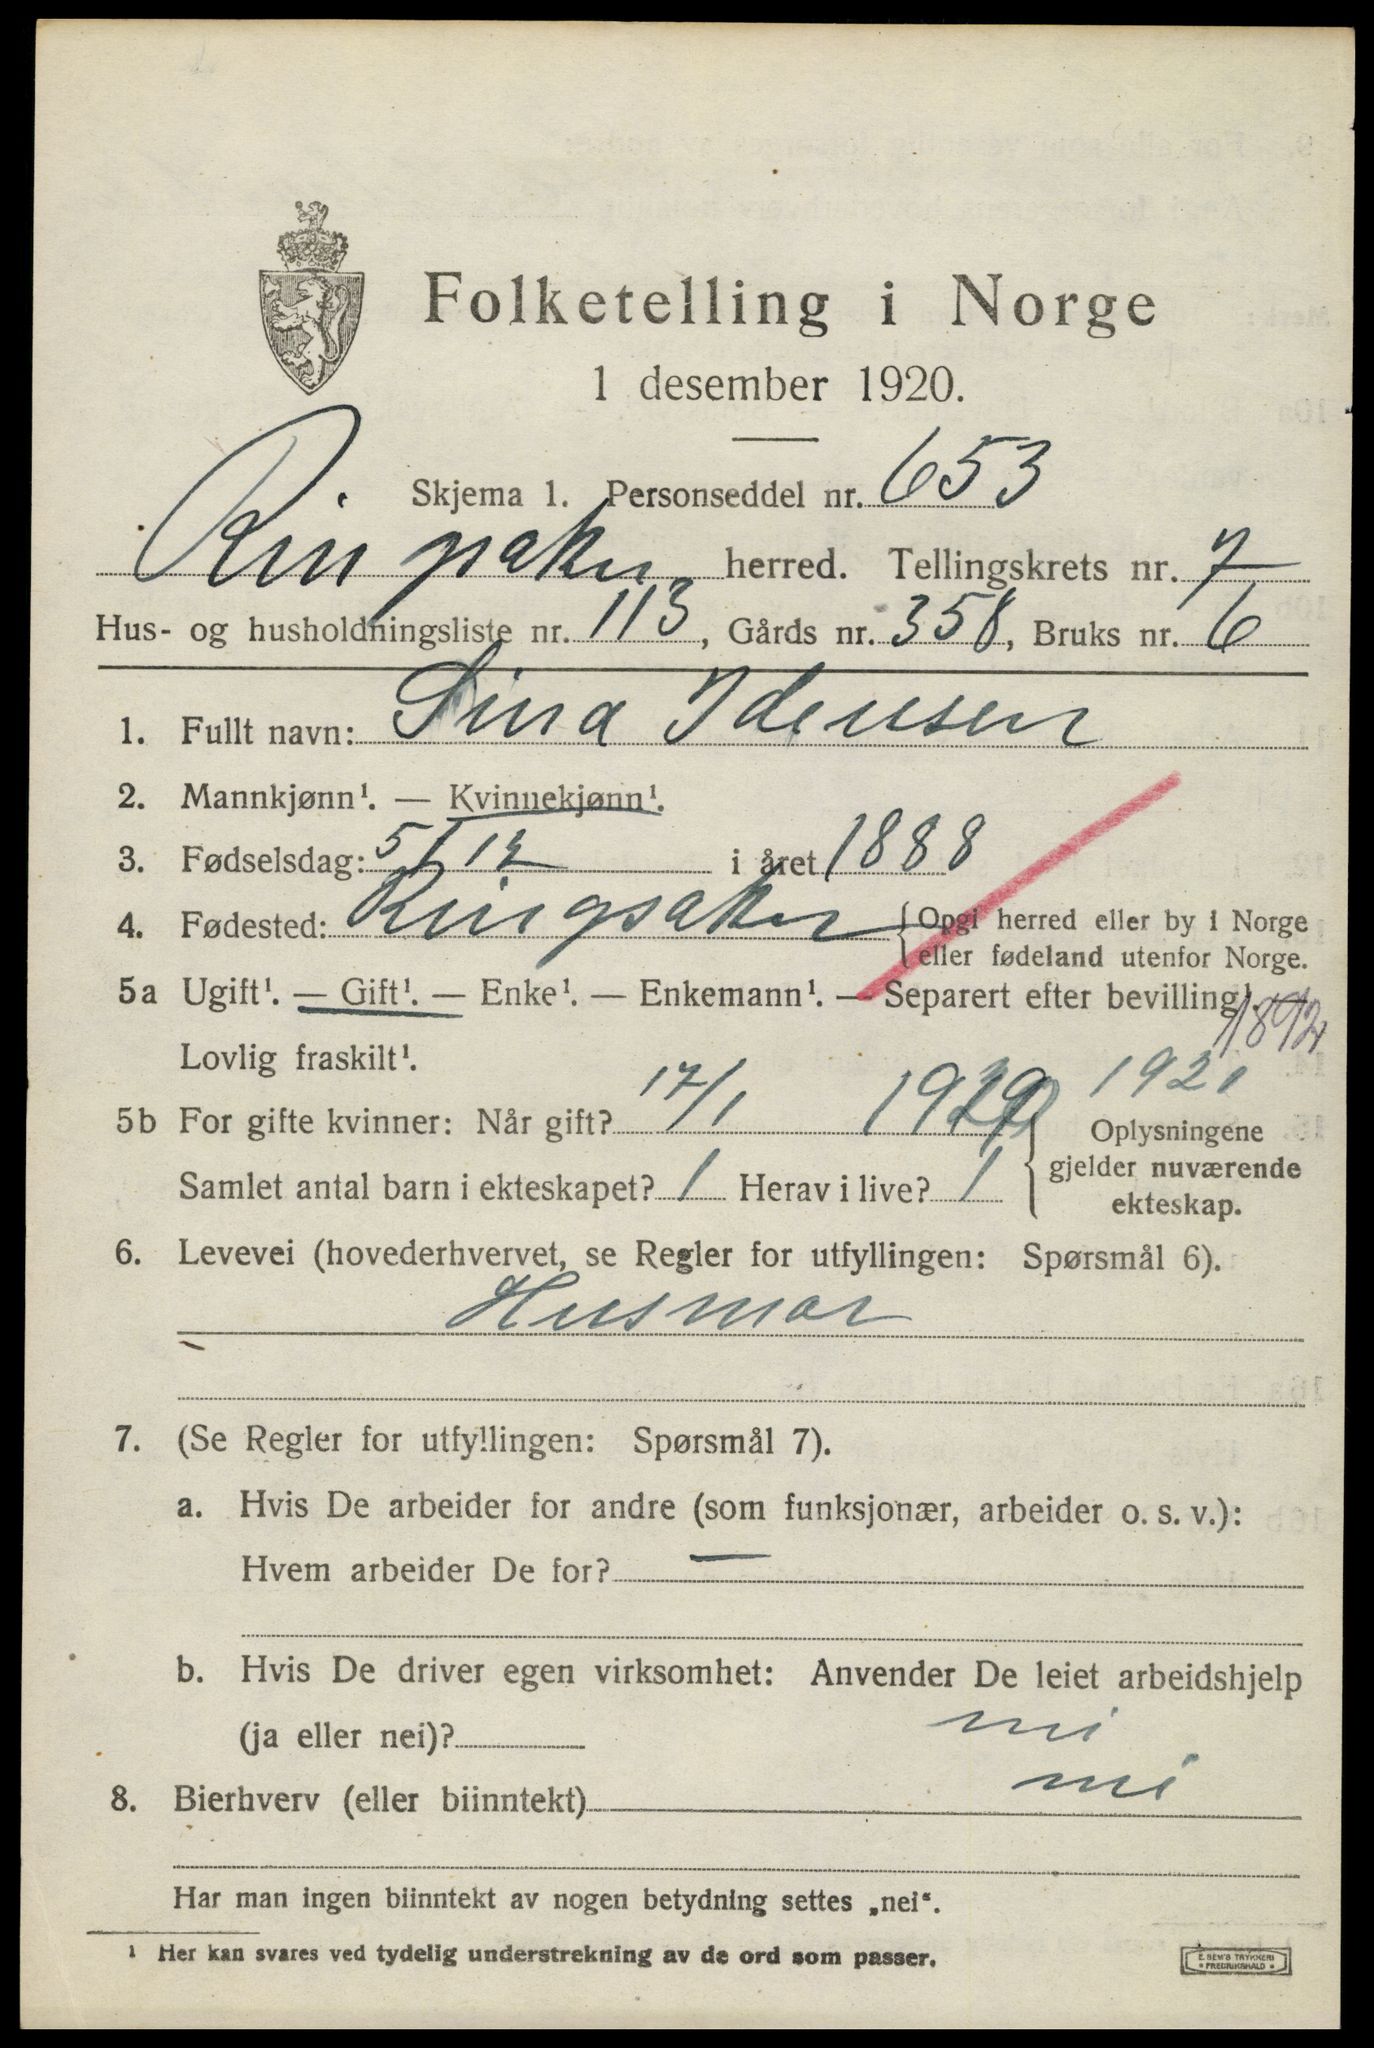 Folketelling i Norge
1 desember 1920.
Skjema 1. Personseddel nr. 653
Ringsaker herred. Tellingskrets nr. 7
Hus- og husholdningsliste nr. 113, Gårds nr. 358, Bruks nr. 6
1. Fullt navn: Sina Idensen
2. Mannkjønn¹. — Kvinnekjønn¹.
3. Fødselsdag: 5/12 i året 1888
4. Fødested: Ringsaker {Opgi herred eller by i Norge
eller fødeland utenfor Norge.
5a Ugift¹. — Gift¹. — Enke¹. — Enkemann¹. — Separert efter bevilling¹. —
Lovlig fraskilt¹.
5b For gifte kvinner: Når gift? 17/1 1921
Oplysningene
gjelder nuværende
ekteskap.
Samlet antal barn i ekteskapet? 1 Herav i live? 1
6. Levevei (hovederhvervet, se Regler for utfyllingen: Spørsmål 6).
Husmor
7. (Se Regler for utfyllingen: Spørsmål 7).
a. Hvis De arbeider for andre (som funksjonær, arbeider o. s. v.):
Hvem arbeider De for? —
b. Hvis De driver egen virksomhet: Anvender De leiet arbeidshjelp
(ja eller nei)? nei
8. Bierhverv (eller biinntekt) nei
Har man ingen biinntekt av nogen betydning settes „nei“.
¹ Her kan svares ved tydelig understrekning av de ord som passer.
E. SEM'S TRYKKERI
• FREDRIKSHALD •